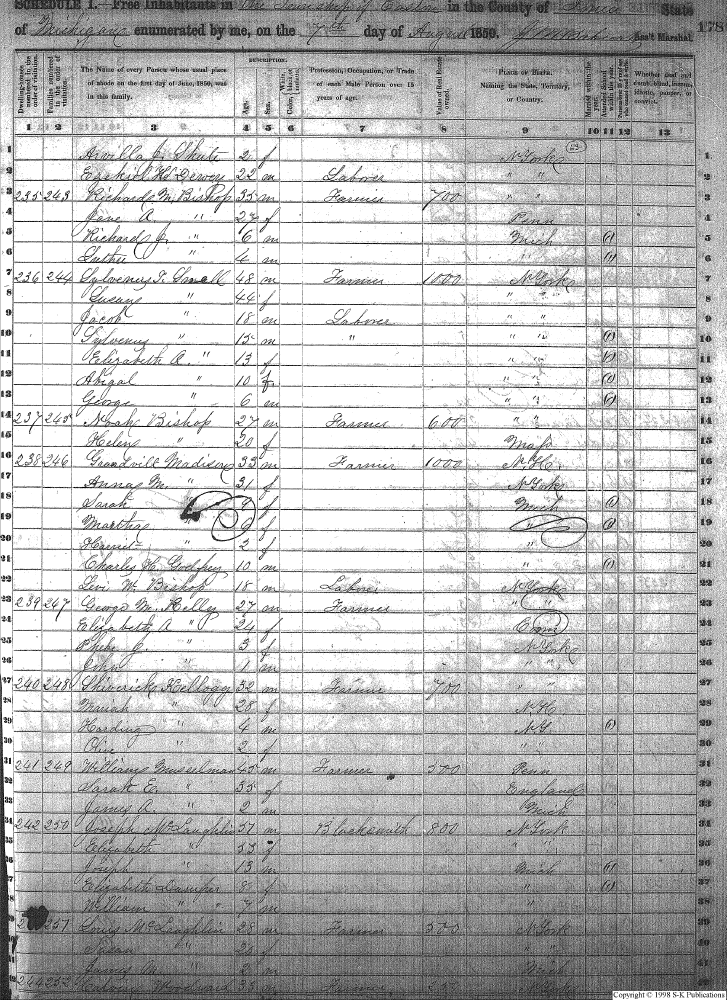 SCHEDULE I.—Free Inhabitants in The Township of Easton in the County of Ionia State
of Michigan enumerated by me, on the 7th day of August 1850. Ass't Marshal 178
DESCRIPTION.
Dwelling-houses numbered in the order of visitation. Families numbered in the order of visitation. The Name of every Person whose usual place of abode on the first day of June, 1850, was in this family. Age. Sex. White, black, or mulatto. Profession, Occupation, or Trade of each Male Person over 15 years of age. Value of Real Estate owned. PLACE OF BIRTH. Naming the State, Territory, or Country. Married within the year. Attended School within the year. Whether deaf and dumb, blind, insane, idiotic, pauper, or convict.
1 2 3 4 5 6 7 8 9 10 11 12 13
1 Arvilla J. Skuts 2 f N York 1
2 Ezekiel H. 22 m Laborer " " 2
3 235 243 Richard M. Bishop 35 m Farmer 700 " " 3
4 Jane A. " 27 f Penn 4
5 Richard J. " 6 m Mich (1) 5
6 Luther " 4 m " (1) 6
7 236 244 Sylvenus T. Small 48 m Farmer 1000 N York 7
8 Susan " 44 f " " 8
9 Jacob " 18 m Laborer " " 9
10 Sylvenus " 15 m " " " (1) 10
11 Elizabeth A. " 13 f " " (1) 11
12 Abigal " 10 f " " (1) 12
13 George " 6 m " " (1) 13
14 237 245 Noah Bishop 27 m Farmer 600 " " 14
15 Helen " 20 f Mass 15
16 238 246 Grandville Madison 33 m Farmer 1000 N. H. 16
17 Anna M. " 31 f N York 17
18 Sarah " 9 f Mich (1) 18
19 Martha " f " (1) 19
20 Harriet " 2 f " 20
21 Charles H. Godfrey 10 m " (1) 21
22 Levi W. Bishop 18 m Laborer N York 22
23 239 247 George M. Kelley 27 m Farmer " " 23
24 Elizabeth A " 24 f Conn 24
25 Phebe C. " 3 f N York 25
26 John " 1 m " " 26
27 240 248 Shiverick Kellogg 32 m Farmer 700 " " 27
28 Mariah " 28 f N. H. 28
29 Harding " 4 m N.Y. (1) 29
30 " 2 f " " 30
31 241 249 William Musselman 45 m Farmer 500 Penn 31
32 Sarah E. " 35 f England 32
33 James A. " 2 m Mich 33
34 242 250 Joseph McLaughlin 57 m Blacksmith 800 N York 34
35 Elizabeth " 53 f " " 35
36 Joseph " 13 m Mich (1) 36
37 Elizabeth 8 f " (1) 37
38 William " 7 m " 38
39 251 Louis McLaughlin 28 m Farmer 500 N York 39
40 Susan " f " " 40
41 James " 2 m Mich 41
244 252 Woodward 35 Farmer N York
Copyright © 1998 S-K Publications